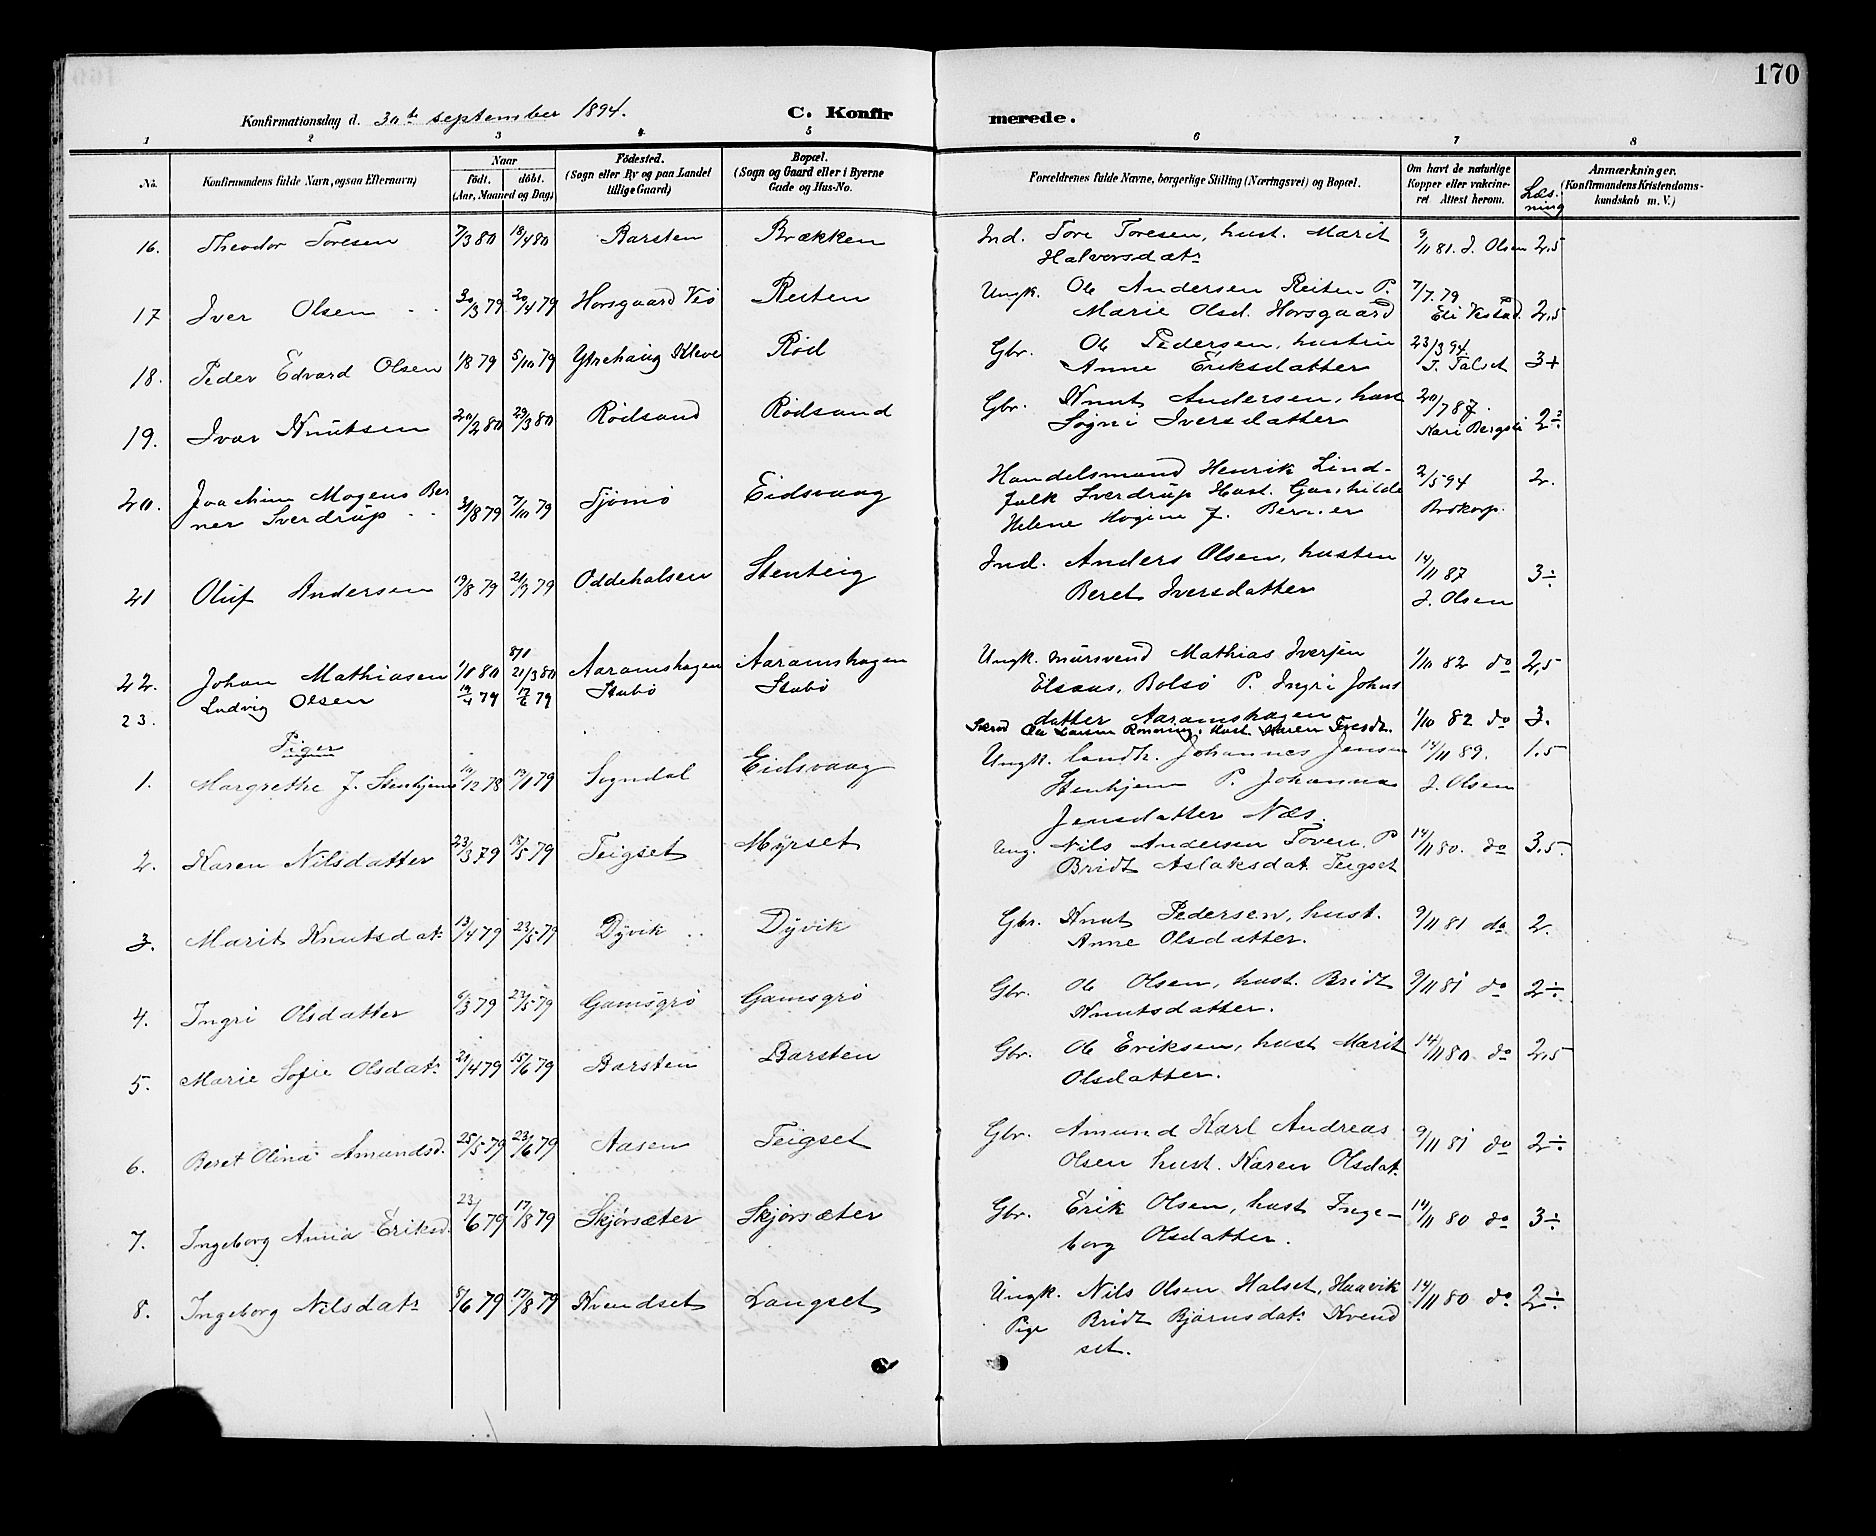 170
Konfirmationsdag d. 30te september 1894. C. Konfirmerede.
1 2 3 4 5 6 7 8
No. Konfirmandens fulde Navn, ogsaa Efternavn) Naar født. døbt. (Aar, Maaned og Dag) Fødested. (Sogn eller By og paa Landet tillige Gaard) Bopæl. (Sogn og Gaard eller i Byerne Gade og Hus-No. Forældrenes fulde Navne, borgerlige Stilling (Næringsvei) og Bopæl. Om havt de naturlige Kopper eller vakcineret Attest herom. Læsning Anmærkninger. (Konfirmandens Kristendomskundskab m. V.)
16. Theodor Toresen 7/3 80 18/4 80 Barsten Brækken Ind. Tore Toresen, hust. Marit 9/11 81. J. Olsen 2,5
Halvorsdatr
17 Iver Olsen 30/3 79 20/4 79 Horsgaard Veø Reiten Ungk. Ole Andersen Reiten P. 7/7. 79
Marie Olsd. Horsgaard Eli Vestad. 2,5
18. Peder Edvard Olsen 1/8 79 5/10 79 Ytrehaug Kleve Rød Gbr. Ole Pedersen, hustru 23/3 94
Anne Eriksdatter T. Talset 3+
19. Ivar Knutsen 20/2 80 29/3 80 Rødsand Rødsand Gbr. Knut Andersen, hust 20/7 87.
Søgni Iversdatter Kari Bergsli 2÷
20. Joachim Mogens Ber Tjømø Eidsvaag Handelsmand Henrik Lind- 2/5 94 2.
ner Sverdrup 31/8 79 7/10 79 falk Sverdrup Hust. Gunhilde
Helene Hogine f. Berner
21 Oluf Andersen 19/8 79 21/9 79 Oddehalsen Stenteig Ind. Anders Olsen, husten 14/11 87 3÷
Beret Iversdatter J. Olsen
22. Johan Mathiasen 1/1 80 21/3 80 Aaramshagen Aaramshagen Ungk. mursvend Mathias Iversen 1/10 82 do 2,5
23. Ludvig Olsen 19/4 79 17/6 79 Stubø Stubø Elsaas, Bolsø P. Ingri Johns
datter Aaramshagen 1/10 82 do 3.
Piger
1. Margrethe J. Stenhjem 12 78 19/1 79 Sogndal Eidsvaag Ungk. landh. Johannes Jensen 14/11 89. 1.5
Stenhjem P. Johanna J. Olsen
Jensdatter Næs.
2. Karen Nilsdatter 23/3 79 18/5 79 Teigset Myrset Ung. Nils Andersen Toven. P 14/11 80. do 3,5.
Bridt Aslaksdat. Teigset
3. Marit Knutsdatr 13/4 79 23/5 79 Dyvik Dyvik Gbr. Knut Pedersen, hust. 9/11 81 do 2.
Anne Olsdatter.
4. Ingri Olsdatter 6/3 79 23/5 79 Gamsgrø Gamsgrø Gbr. Ole Olsen, hust. Bridt 9/11 81 do 2÷
Knutsdatter.
5. Marie Sofie Olsdatr 21/4 79 15/6 79 Barsten Barsten Gbr. Ole Eriksen, hust Marit 14/11 80 do 2,5
Olsdatter.
6. Beret Olina Amundsd. 25/5 79 23/6 79 Aasen Teigset Gbr. Amund Karl Andreas 9/11 81 do 2÷
Olsen hust. Karen Olsdat.
7. Ingeborg Anna Eriksd. 23/6 79 17/8 79 Skjørsæter Skjørsæter Gbr. Erik Olsen, hust Inge- 14/11 80 do 3÷
borg Olsdatter.
8. Ingeborg Nilsdatr 8/6 79 17/8 79 Kvendset Langset Ungk. Nils Olsen Halset, Haavik 14/11 80 do 2÷
Pige Bridt Bjørnsdatr Kvend
set.